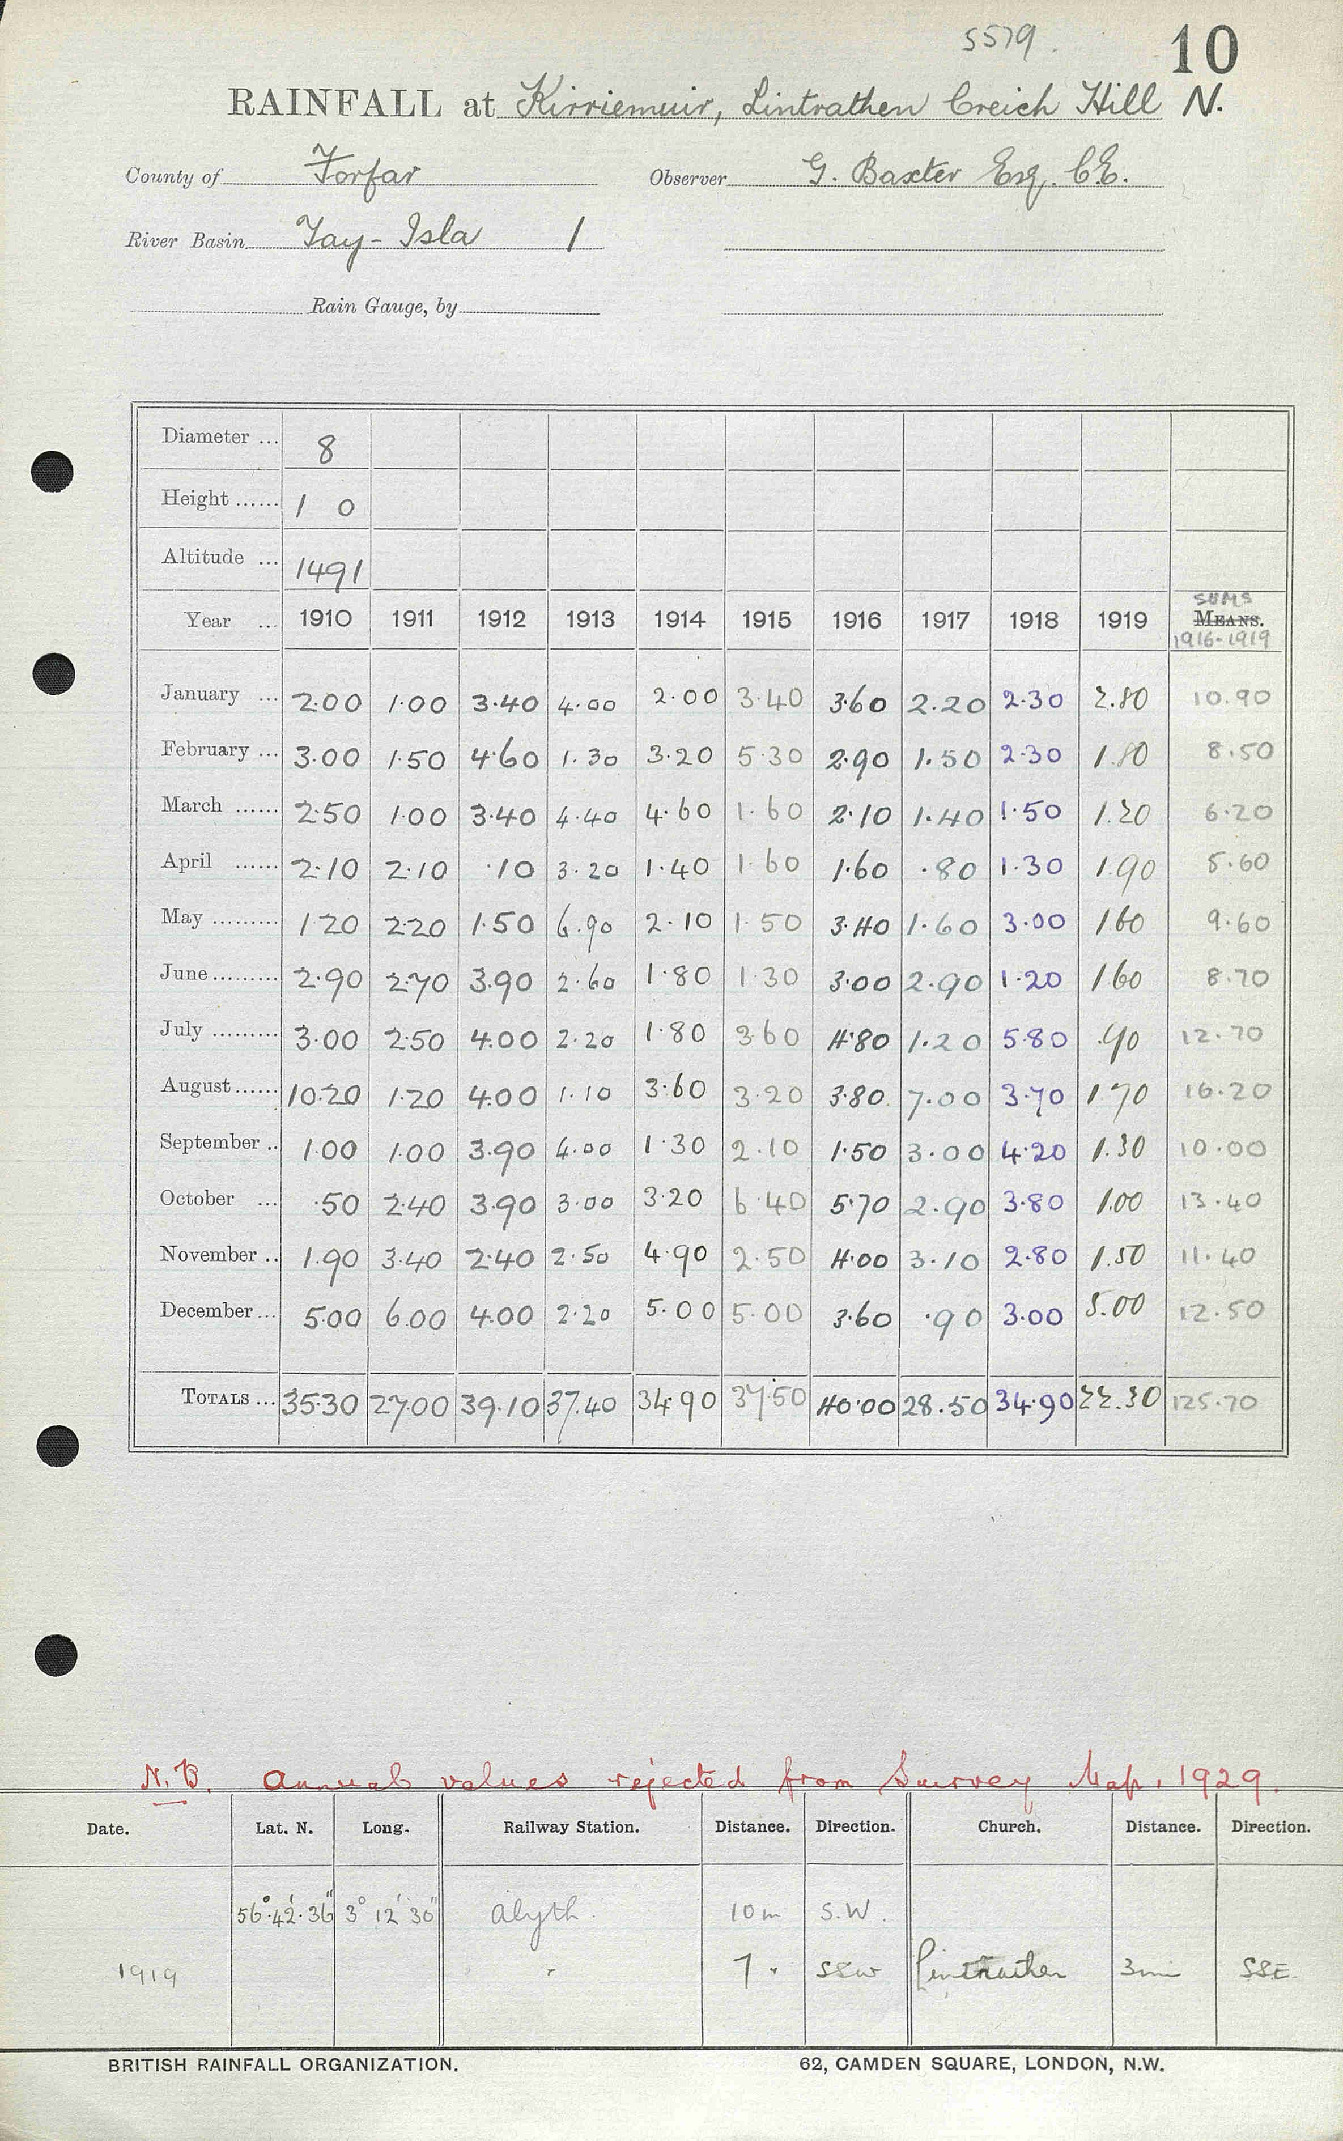 5579.
10
RAINFALL at Kirriemuir, Lintrathen Creich Hill N.
County of Forfar Observer G. Baxter Esq. C.E.
River Basin Tay - Isla 1
Rain Gauge, by
Diameter ... 8
Height ...... 1 0
Altitude ... 1491
SUMS
Year ... 1910 1911 1912 1913 1914 1915 1916 1917 1918 1919 MEANS.
1916-1919
January ... 2.00 1.00 3.40 4.00 2.00 3.40 3.60 2.20 2.30 2.80 10.90
February ... 3.00 1.50 4.60 1.30 3.20 5.30 2.90 1.50 2.30 1.80 8.50
March ...... 2.50 1.00 3.40 4.40 4.60 1.60 2.10 1.40 1.50 1.20 6.20
April ...... 2.10 2.10 .10 3.20 1.40 1.60 1.60 .80 1.30 1.90 5.60
May ......... 1.20 2.20 1.50 6.90 2.10 1.50 3.40 1.60 3.00 1.60 9.60
June ......... 2.90 2.70 3.90 2.60 1.80 1.30 3.00 2.90 1.20 1.60 8.70
July ......... 3.00 2.50 4.00 2.20 1.80 3.60 4.80 1.20 5.80 .90 12.70
August ...... 10.20 1.20 4.00 1.10 3.60 3.20 3.80 7.00 3.70 1.70 16.20
September .. 1.00 1.00 3.90 4.00 1.30 2.10 1.50 3.00 4.20 1.30 10.00
October ... .50 2.40 3.90 3.00 3.20 6.40 5.70 2.90 3.80 1.00 13.40
November .. 1.90 3.40 2.40 2.50 4.90 2.50 4.00 3.10 2.80 1.50 11.40
December ... 5.00 6.00 4.00 2.20 5.00 5.00 3.60 .90 3.00 5.00 12.50
TOTALS ... 35.30 27.00 39.10 37.40 34.90 37.50 40.00 28.50 34.90 22.30 125.70
N.B. Annual values rejected from Survey Map, 1929.
Date. Lat. N. Long. Railway Station. Distance. Direction. Church. Distance. Direction.
56°.42'.36" 3° 12' 30" Alyth. 10m S.W.
1919 " 7 " SSW Lintrathen 3m SSE
BRITISH RAINFALL ORGANIZATION. 62, CAMDEN SQUARE, LONDON, N.W.